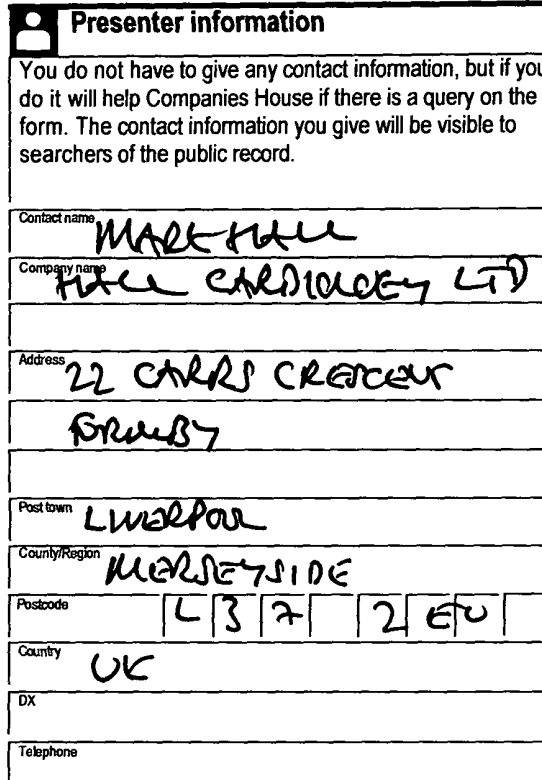 Presenter information
You do not have to give any contact information, but if you
do it will help Companies House if there is a query on the
form. The contact information you give will be visible to
searchers of the public record.
Contact name MARK HALL
Company name HALL CARDIOLOGY LTD
Address 22 CARRS CRESCENT
FORMBY
Post town LIVERPOOL
County/Region MERSEYSIDE
Postcode L 3 7 2 E U
Country UK
DX
Telephone